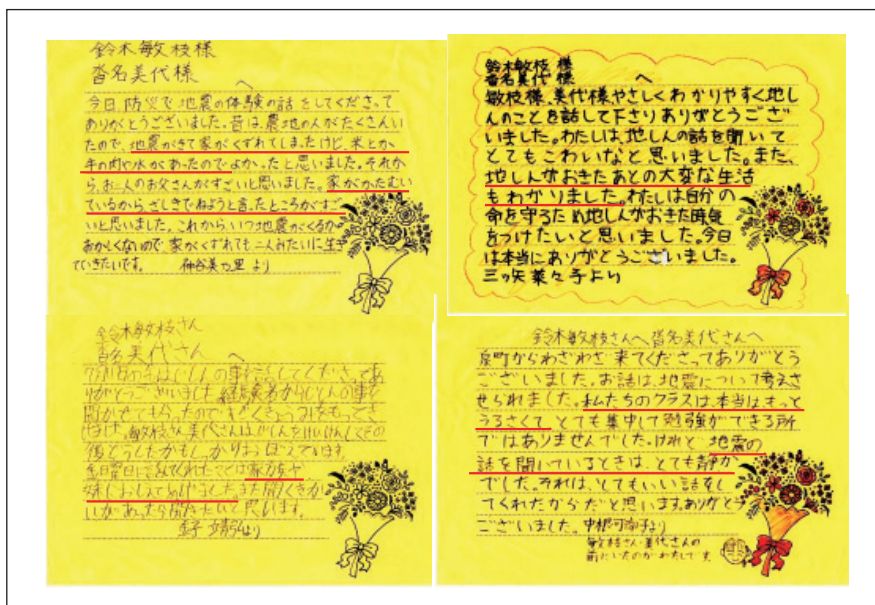 鈴木敏枝様
沓名美代様 へ
今日、防災で地震の体験の話をしてくださって
ありがとうございました。昔は、農地の人がたくさんい
たので、地震がきて家がくずれてしまったけど、米とか
牛の肉や水があったのでよかったと思いました。それか
ら、お二人のお父さんがすごいと思いました。家がかたむい
ているから、ざしきでねようと言ったところがすご
いと思いました。これから、いつ地震がくるか
おかしくないので、家がくずれても二人みたいに生き
ていきたいです。 より
鈴木敏枝様
沓名美代様 へ
敏枝様、美代様やさしくわかりやすく地し
んのことを話して下さりありがとうござ
いました。わたしは、地しんの話を聞いて
とてもこわいなと思いました。また、
地しんがおきたあとの大変な生活
もわかりました。わたしは自分の
命を守るため地しんがおきた時気
をつけたいと思いました。今日
は本当にありがとうございました。
三ッ矢菜々子より
鈴木敏枝さん
沓名美代さん へ
りがとうございました。経験者からじしんの事を
聞かせてもらったので
敏枝さん美代さんはじしんをけいけんしてその
後どうしたかもしっかりおぼえています。
家族や
より
鈴木敏枝さんへ沓名美代さんへ
町からわざわざ来てくださってありがとう
ございました。お話は、地震について考えさ
せられました。私たちのクラスは、本当はもっと
うるさくて、とても集中して勉強ができる所
ではありませんでした。けれど、地震の
話を聞いているときは、とても静か
でした。それは、とてもいい話をし
てくれたからだと思います。ありがとう
ございました。中根可南子より
敏枝さん・美代さんの
前にいたのがわたしです